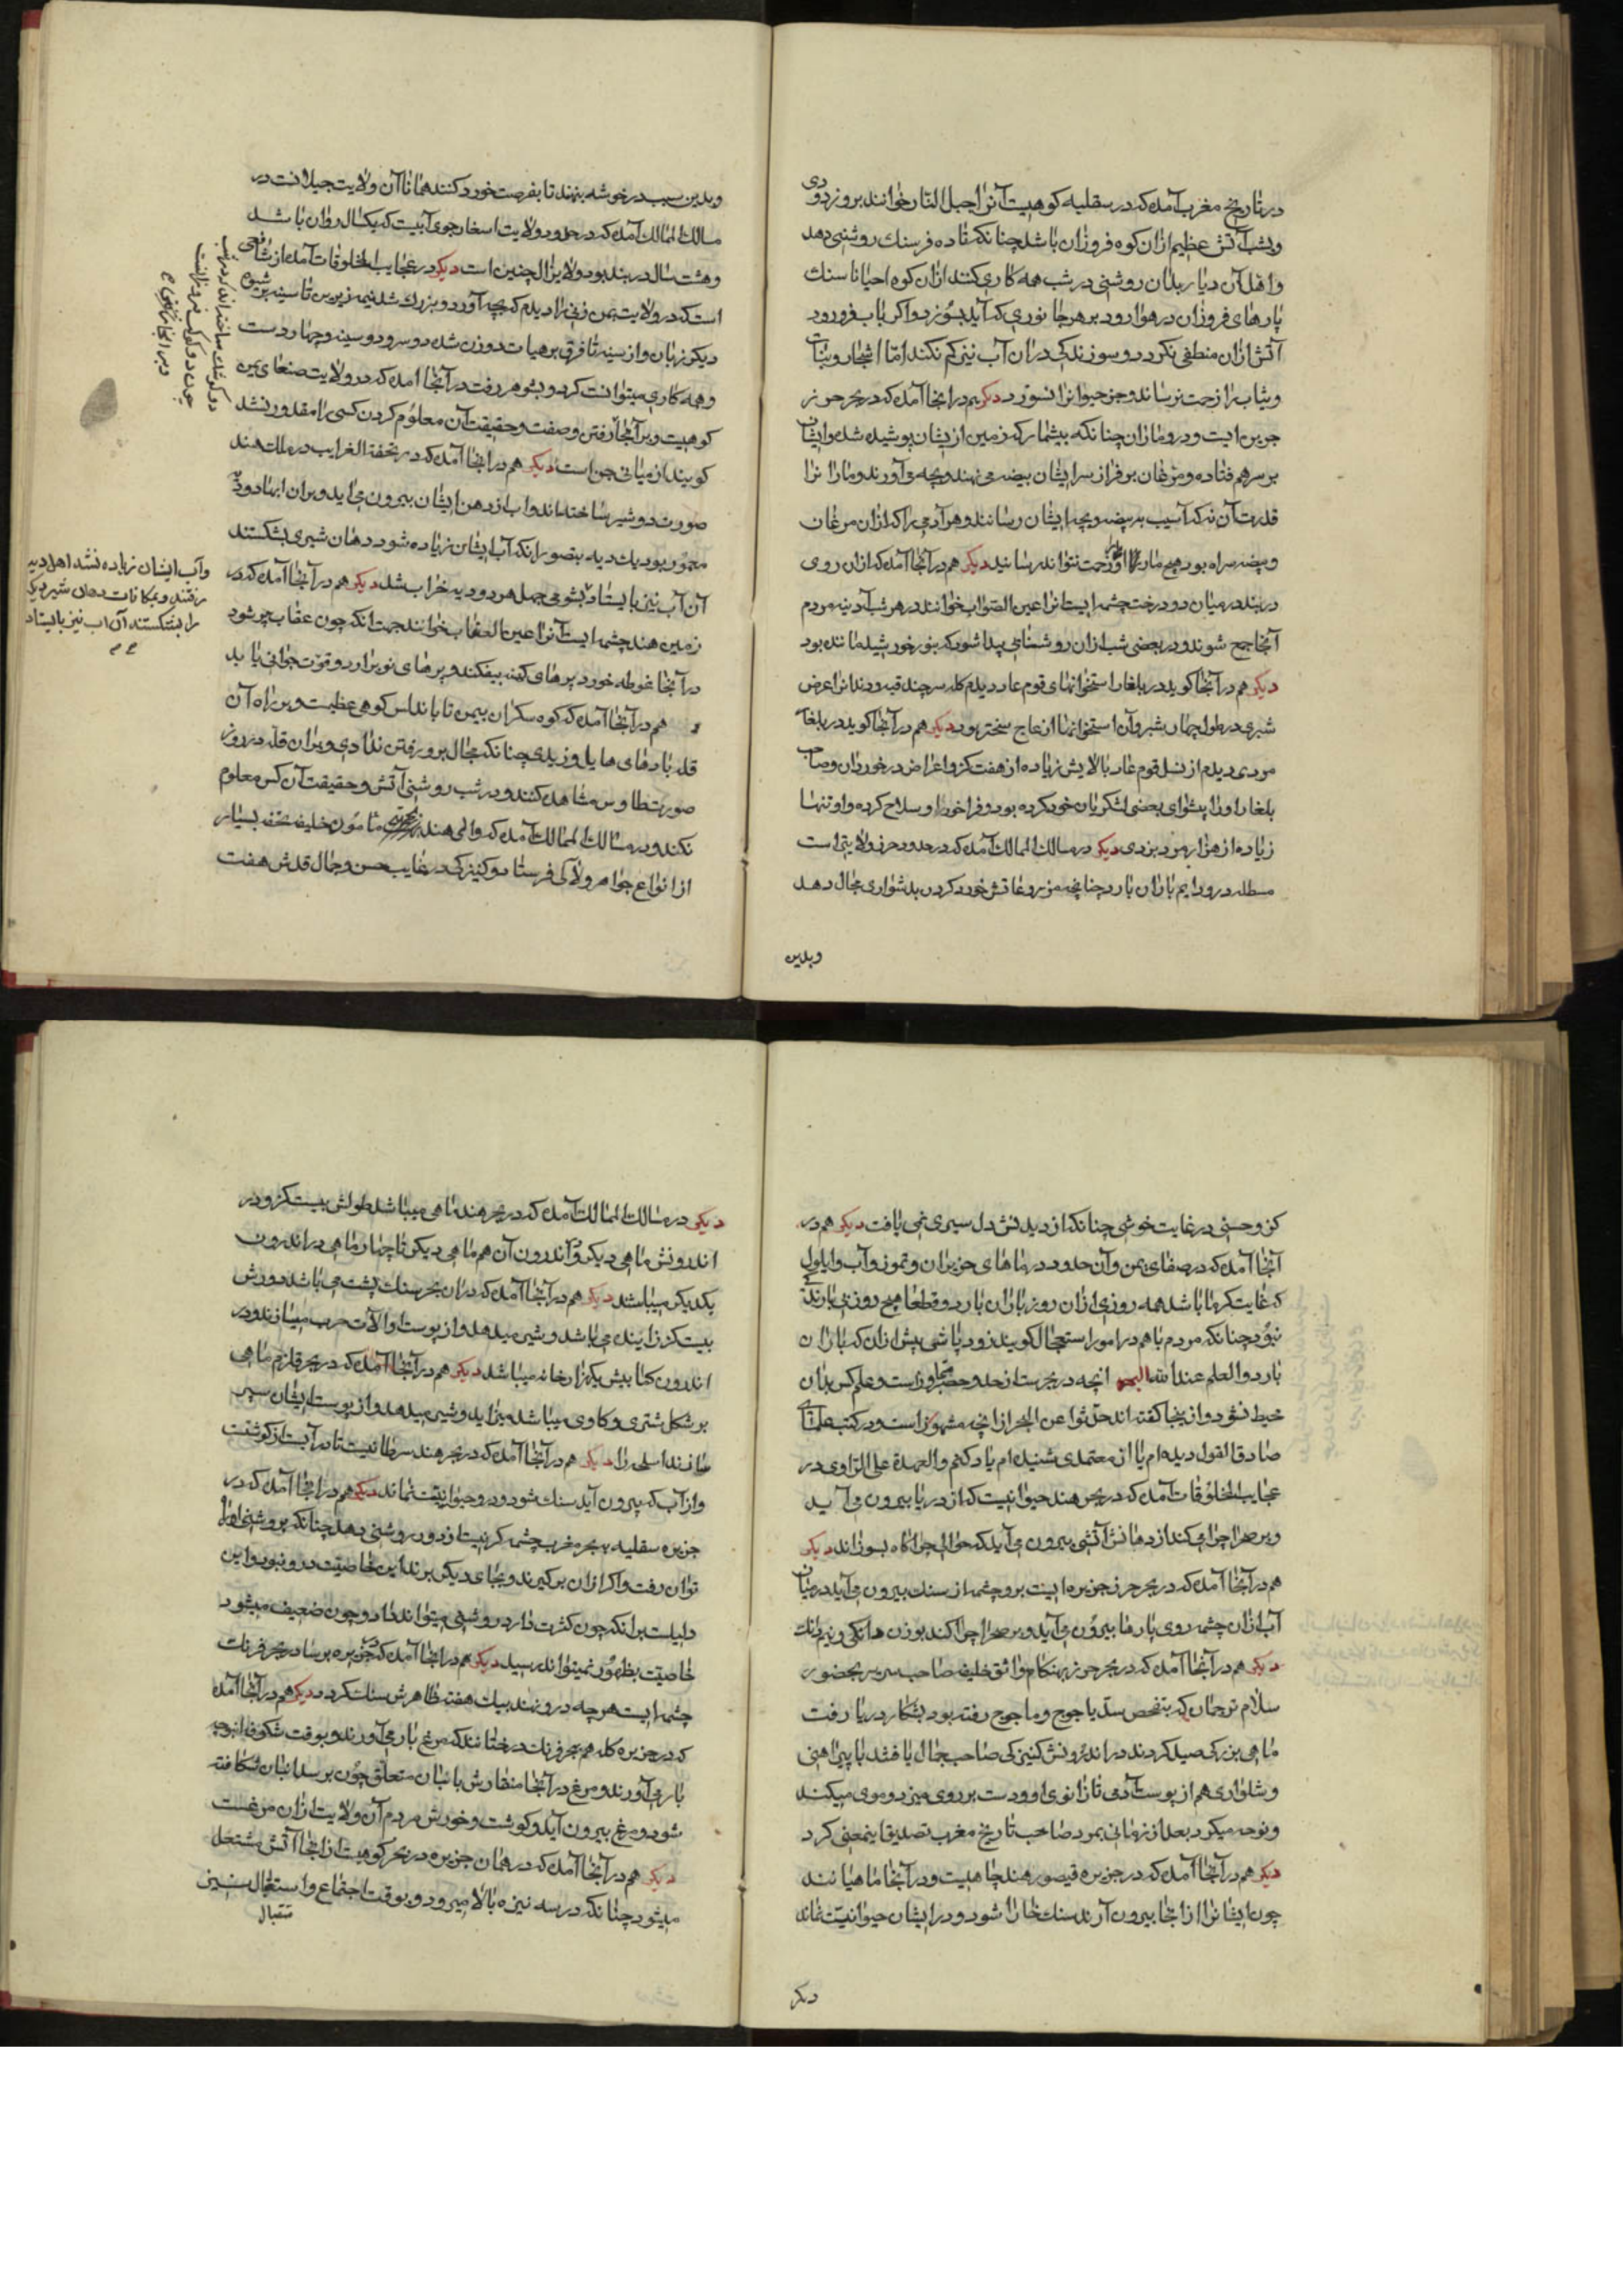 در تاریخ مغرب آمده که در سقلیه کوهیست آنرا جبل النار خوانند بروز دودی
وبشب آتش عظیم ازان کوه فروزان باشد چنانکه تا ده فرسنک روشنی دهد
واهل آن دیار بدان روشنی در شب همه کاری کنند ازان کوه احیانا سنک
پارهای فروزان در هوا رود بر هر جانوری که آید بسوزد واکر باب فرورود
آتش ازان منطفی نکردد وسوزندکی دران آب نیز کم نکند اما اشجار ونبات
وثیاب را زحمت نرساند وجز حیوانرا نسوزد دیکر هم در انجا آمده که در بحر خزر
جزیره ایست ودرو ماران چنانکه بیشمار که زمین ازیشان پوشیده شده وایشان
بر سر هم فتاده ومرغان بر فراز سر ایشان بیضه می نهند وبچه می آورند ومارانرا
قدرت آن نه که آسیب بر بیضه وبچه ایشان رسانند وهر آدمی را که ازان مرغان
وبیضه همراه بود هیچ مار او را زحمت نتواند رسانید دیکر هم در آنجا آمده که ازان روی
دربند در میان دو درخت چشمه ایست انرا عین الصواب خوانند در هر شب آدینه مردم
آنجا جمع شوند ودر بعضی شب ازان روشنایی پیدا شود که بنور خورشید مانند بود
دیکر هم در آنجا کوید در بلغار استخوانهای قوم عاد دیدم کله سر چند قبه ودندانرا عرض
شبری در طول چهار شبر وآن استخوانها از عاج سختر بود دیکر هم در آنجا کوید در بلغار
مردی دیدم از نسل قوم عاد بالایش زیاده از هفت کز واعراض در خور آن وصاحب
بلغار اورا پیشوای بعضی لشکریان خود کرده بود وفراخور او سلاح کرده واو تنها
زیاده از هزار مرد بزدی دیکر در مسالک الممالک آمده که در حدود خزر ولایتی است
مسطله درو دایم باران بارد چنانچه مزروعاتش خورد کردن بدشواری مجال دهد
وبدین
وبدین سبب در خوشه بنهند تا بفرصت خورد کنند همانا آن ولایت جیلانست در
مسالک الممالک آمده که در حدود ولایت اسغار جوی آبیست که یکسال روان باشد
وهشت سال در بند بود ولایزال چنین است دیکر در عجایب المخلوقات آمده از شافعی
است که در ولایت یمن زنی را دیدم که بچه آورد وبزرک شد نیمه زیرین تا سینه بر شیوه
دیکر زنان واز سینه تا فرق بر هیات دو زن شده دو سر ودو سینه وچهار دست
وهمه کاری میتوانست کرد وبشوهر رفت در آنجا امده که در ولایت صنعای یمن
کوهیست وبر آنجا رفتن وصفت وحقیقت آن معلوم کردن کسی را مقدور نشد
کویند از میانی جن است دیکر هم در انجا آمده که در تحفة الغرایب در ملک هند
صورت دو شیر ساخته اند واب از دهن ایشان بیرون می اید وبران ابها دو دیه
معمور بود یک دیه بتصور انکه آب ایشان زیاده شود دهان شیری بشکستند
آن آب نیز بایستاد بشومی جهل هر دو دیه خراب شد دیکر هم در آنجا آمده که در
زمین هند چشمه ایست آنرا عین العقاب خوانند جهت انکه چون عقاب پیر شود
در آنجا غوطه خورد پرهای کهنه بیفکند وپرهای نو برارد وقوت جوانی یابد
هم در آنجا آمده که کوه سکران بیمن تا باندلس کوهی عظیمست وبر راه آن
قله بادهای هایل وزیدی چنانکه مجال برو رفتن ندادی وبران قله در روز
صورت طاوس مشاهده کنند ودر شب روشنی آتش وحقیقت آن کس معلوم
نکند ودر مسالک الممالک آمده که والی هند بنزد مامون خلیفه تحف بسیار
از انواع جواهر ولآلی فرستاد وکنیزکی در غایت حسن وجمال قدش هفت
وآب ایشان زیاده نشد اهل دیه
رفتند وبمکافات دهان شیر دیکر
را بشکستند آن اب نیز بایستاد
کز وحسنی در غایت خوشی چنانکه از دیدنش دل سیری نمی یافت دیکر هم در
آنجا آمده که در صنعای یمن وآن حدود در ماهای حزیران وتموز وآب وایلول
که غایت کرما باشد همه روزی ازان روز باران بارد وقطعا هیچ روز بی بارندکی
نبود چنانکه مردم باهم در امور استعجال کویند زود باش پیش ازان که باران
بارد والعلم عند الله البحر انچه در بحرست از حد وحصر متجاوز است وعلم کس بدان
محیط نشود واز ینجا کفته اند حدثوا عن البحر از انچه مشهور است ودر کتب علمای
صادق القول دیده ام یا از معتمدی شنیده ام یاد کنم والعهدة علی الراوی در
عجایب المخلوقات آمده که در بحر هند حیوانیست که از دریا بیرون می آید
وبر صحرا چرا می کند از دهانش آتشی بیرون می آید که حوالی چراکاه بسوزاند دیکر
هم در آنجا آمده که در بحر خزر جزیره ایست برو چشمه از سنک بیرون می آید در میان
آب ازان چشمه روی پارها بیرون می آید وبر صحرا چرا کند بوزن دانکی ونیم دانک
دیکر هم در آنجا آمده که در بحر خزر بهنکام واثق خلیفه صاحب سریر بحضور
سلام ترجمان که بتفحص سد یاجوج وماجوج رفته بود بشکار دریا رفت
ماهی بزرکی صید کردند در اندرونش کنیزکی صاحب جمال یافتند با پیراهنی
وشلواری هم از پوست آدمی تا زانوی او ودست بر روی میزد وموی میکند
ونوحه میکرد بعد از زمانی بمرد صاحب تاریخ مغرب تصدیق اینمعنی کرد
دیکر هم در آنجا آمده که در جزیره قیصور هند چاهیست ودر آنجا ماهیانند
چون ایشانرا از انجا بیرون آرند سنک خارا شود ودر ایشان حیوانیت نماند
دیکر
دیکر در مسالک الممالک آمده که در بحر هند ماهی میباشد طولش بیست کز ودر
اندرونش ماهی دیکر ودر آندرون آن هم ماهی دیکر تا چهار ماهی در اندرون
یکدیکر میباشد دیکر هم در آنجا آمده که دران بحر سنک پشت می باشد دورش
بیست کز زاینده می باشد وشیر میدهد واز پوست او آلات حرب میسازند ودر
اندرون کما بیش یکهزار خانه میباشد دیکر هم در آنجا آمده که در بحر قلزم ماهی
بر شکل شتری وکاوی میباشد میزاید وشیر میدهد واز پوست ایشان سپر
سازند اسلحه را دیکر هم در آنجا آمده که در بحر هند سرطانیست تا در آبست از کوشتست
واز آب که بیرون آید سنک شود ودرو حیوانیت نماند دیکر هم در انجا آمده که در
جزیره سقلیه ببحر مغرب چشمه کبریتست از دور روشنی دهد چنانکه بروشنی او راه
توان رفت واکر ازان برکیرند وبجای دیکر برند این خاصیت درو نبود واین
دلیلست برانکه چون کثرت دارد روشنی میتواند داد وچون ضعیف میشود
خاصیت بظهور نمیتواند رسید دیکر هم در انجا آمده که در جزیره برسا در بحر فرنک
چشمه ایست هر چه درو نهند بیک هفته ظاهرش سنک کردد دیکر هم در آنجا آمده
که در جزیره کله هم ببحر فرنک درختانند که مرغ بار می آورند وبوقت شکوفه انوجه
بار می آورند ومرغ در آنجا منقارش بانبان متعلق چون برسد انبان شکافته
شود ومرغ بیرون آید وکوشت وخورش مردم آن ولایت ازان مرغست
دیکر هم در آنجا آمده که در همان جزیره در بحر کوهیست از انجا آتش مشتعل
میشود چنانکه در سه نیزه بالا میرود وبوقت اجتماع واستقبال